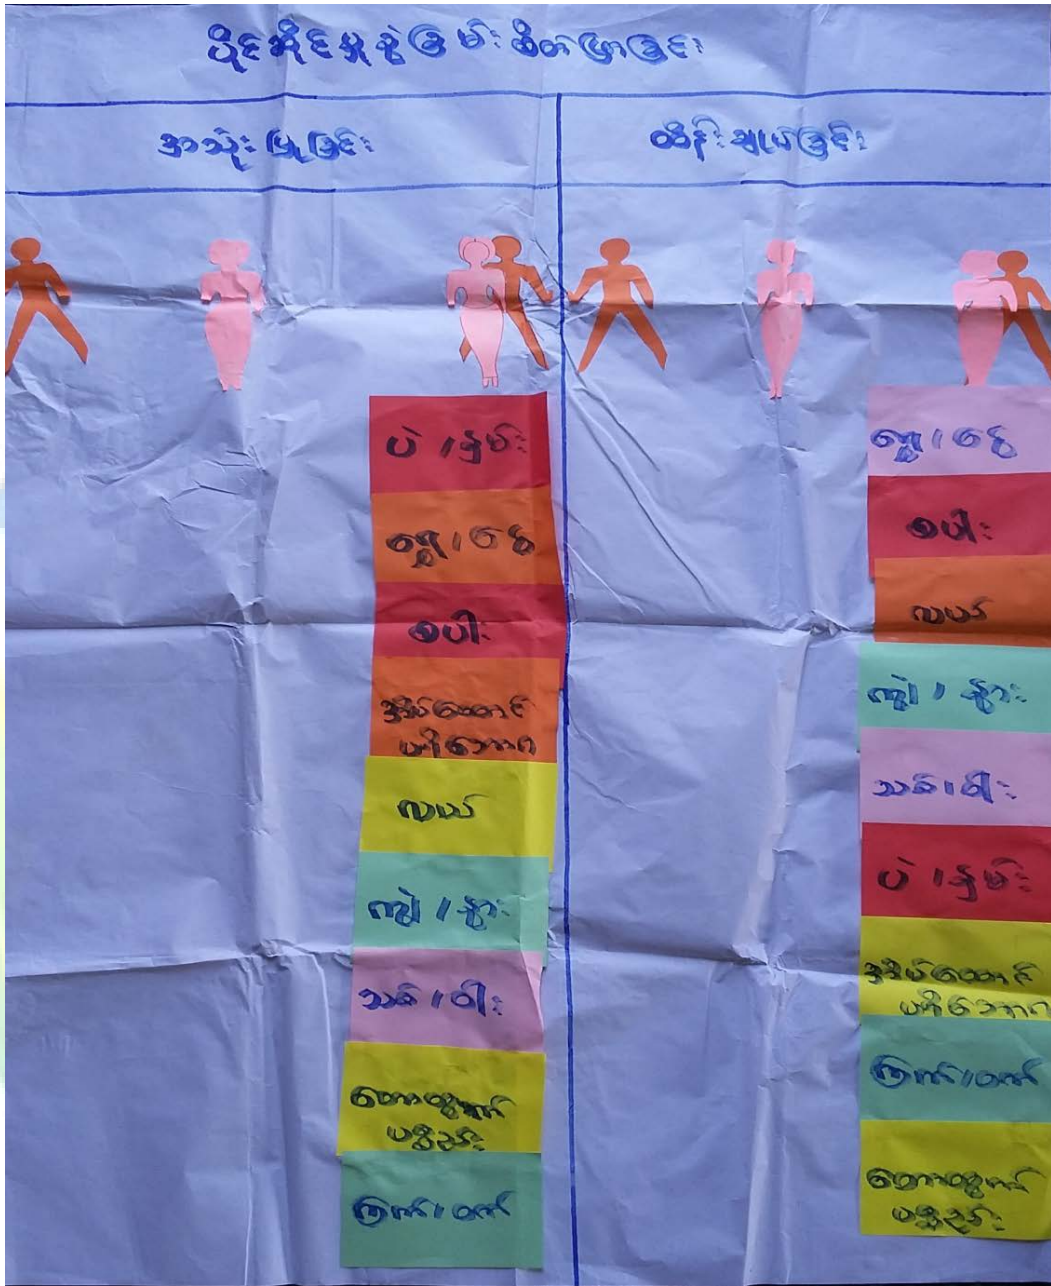 ပိုင်ဆိုင်မှုခွဲခြမ်းစိတ်ဖြာခြင်း
အသုံးပြုခြင်း
ထိန်းချုပ်ခြင်း
ပဲ၊နှမ်း
ရွှေ၊ငွေ
စပါး
အိမ်ထောင်
ပရိဘောဂ
လယ်
ကျွဲ၊နွား
သစ်၊ဝါး
တောထွက်
ပစ္စည်း
ကြက်၊ဝက်
ရွှေ၊ငွေ
စပါး
လယ်
ကျွဲ၊နွား
သစ်၊ဝါး
ပဲ၊နှမ်း
အိမ်ထောင်
ပရိဘောဂ
ကြက်၊ဝက်
တောထွက်
ပစ္စည်း